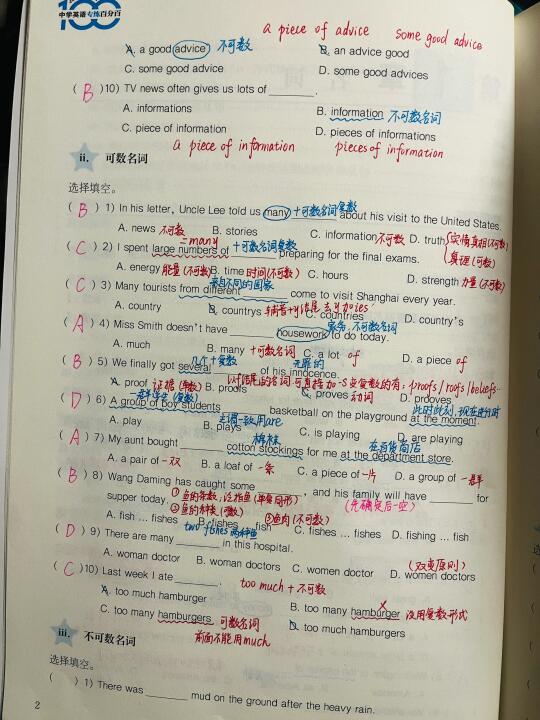 100
中学英语专练百分百
a piece of advice some good advice
A. a good advice 不可数 B. an advice good
C. some good advice D. some good advices
( B )10) TV news often gives us lots of ______.
A. informations B. information 不可数名词
C. piece of information D. pieces of informations
a piece of information pieces of information
ii. 可数名词
选择填空。
( B ) 1) In his letter, Uncle Lee told us many +可数名词复数 ______ about his visit to the United States.
A. news 不可数 B. stories C. information 不可数 D. truth 实情真相(不可数)
=many 真理(可数)
( C ) 2) I spent large numbers of +可数名词复数 ______ preparing for the final exams.
A. energy 能量(不可数) B. time 时间(不可数) C. hours D. strength 力量(不可数)
来自不同的国家
( C ) 3) Many tourists from different ______ come to visit Shanghai every year.
A. country B. countrys 辅音+y结尾 去y加ies C. countries D. country's
( A ) 4) Miss Smith doesn't have ______ housework to do today. 家务,不可数名词
A. much B. many +可数名词 C. a lot of D. a piece of
几个+复数 无罪的
( B ) 5) We finally got several ______ of his innocence.
A. proof 证据(单数) B. proofs C. proves 动词 D. prooves
以f结尾的名词可直接加-s变复数的有: proofs / roofs / beliefs...
一群学生(复数) 主谓一致用are 此时此刻,现在进行时
( D ) 6) A group of boy students ______ basketball on the playground at the moment.
A. play B. plays C. is playing D. are playing
棉袜 在百货商店
( A ) 7) My aunt bought ______ cotton stockings for me at the department store.
A. a pair of 一双 B. a loaf of 一条 C. a piece of 一片 D. a group of 一群
( B ) 8) Wang Daming has caught some ______, and his family will have ______ for
supper today. ①鱼的条数;泛指鱼(单复同形) (先确定后一空)
②鱼的种类(可数) ③鱼肉(不可数)
A. fish ... fishes B. fishes ... fish C. fishes ... fishes D. fishing ... fish
two fishes 两种鱼
( D ) 9) There are many ______ in this hospital. (双变原则)
A. woman doctor B. woman doctors C. women doctor D. women doctors
( C )10) Last week I ate ______. too much + 不可数
A. too much hamburger B. too many hamburger 没用复数形式
C. too many hamburgers 可数名词 D. too much hamburgers
前面不能用much
iii. 不可数名词
选择填空。
( ) 1) There was ______ mud on the ground after the heavy rain.
2